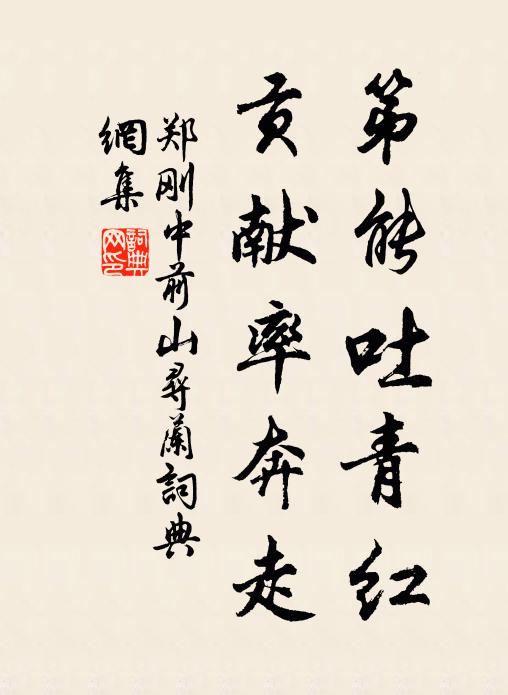 第能吐青红
贡献率奔走
郑刚中前山寻兰詞典
網集
詞典网印